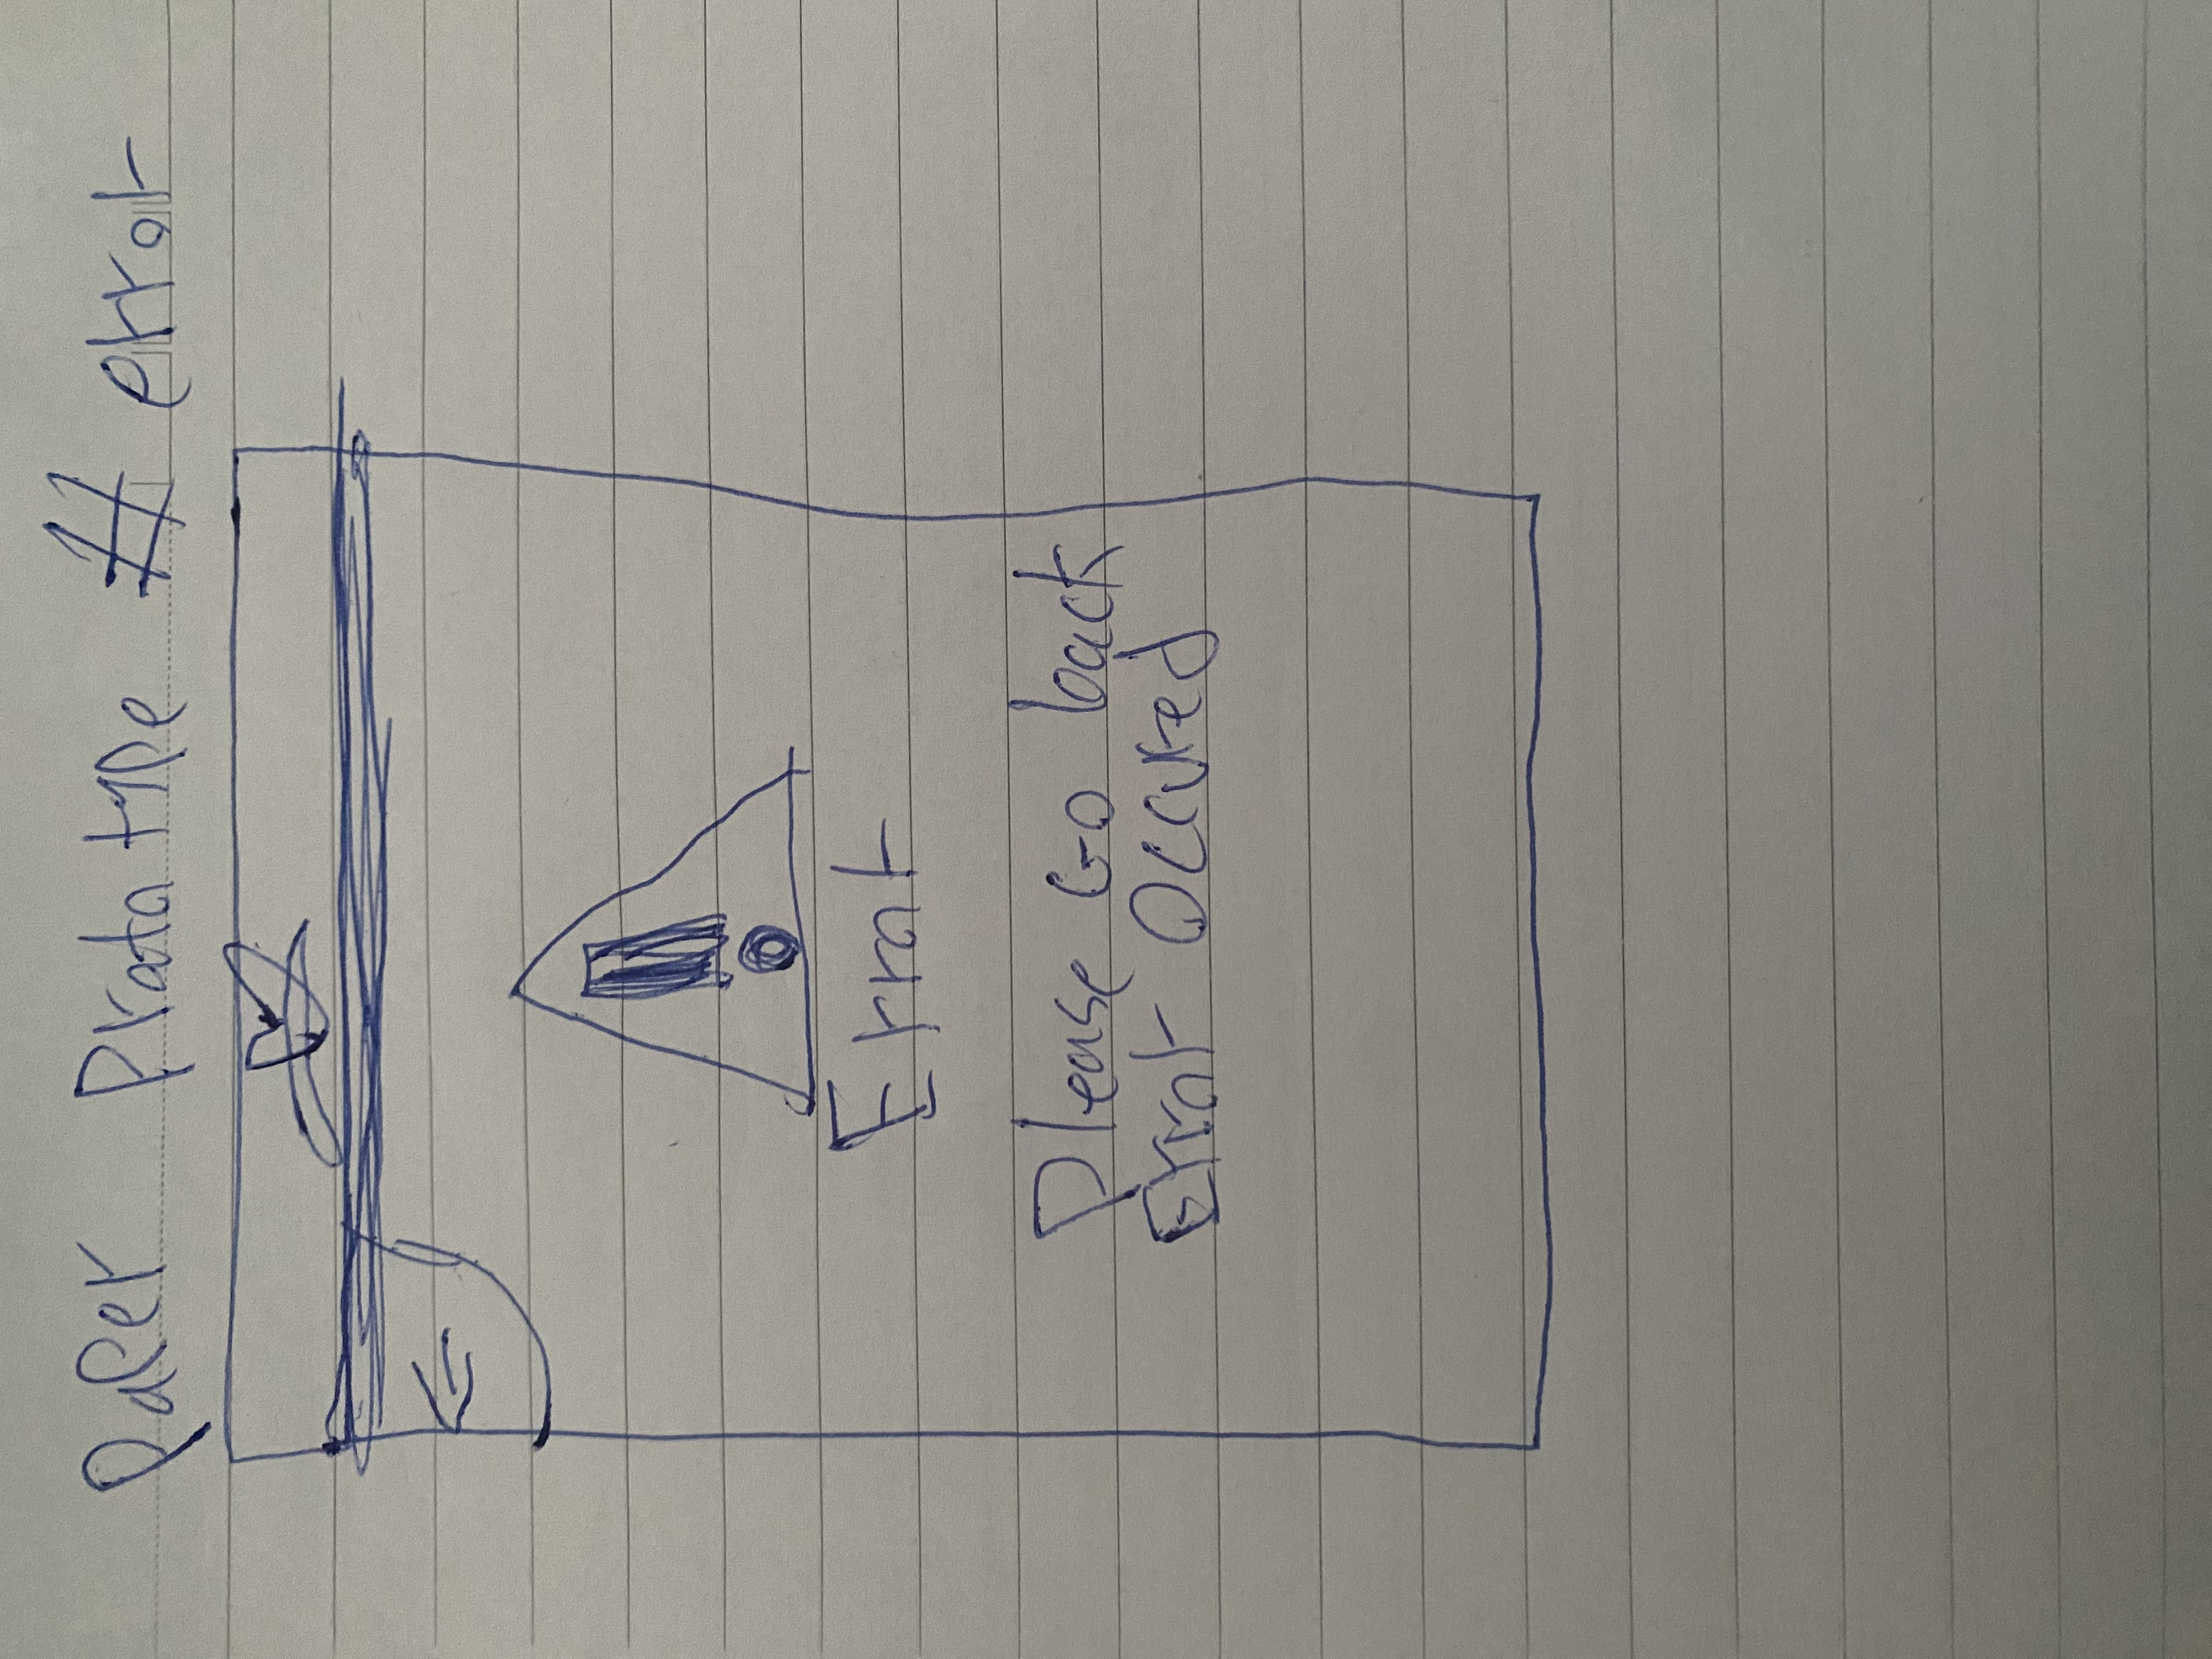 Paper Prototype # error
Error
Please Go back
Error Occured